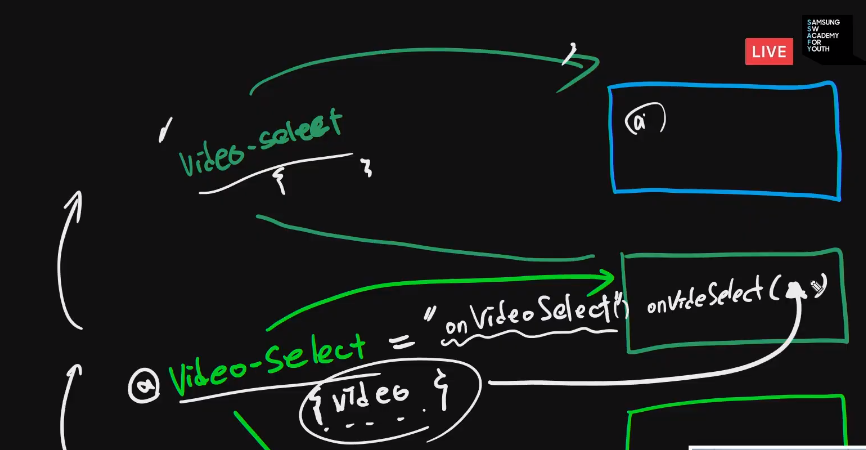 SAMSUNG
SW
ACADEMY
FOR
YOUTH
LIVE
Video-select
{ }
a
onVideSelect( )
@Video-Select = "onVideoSelect"
{ video }